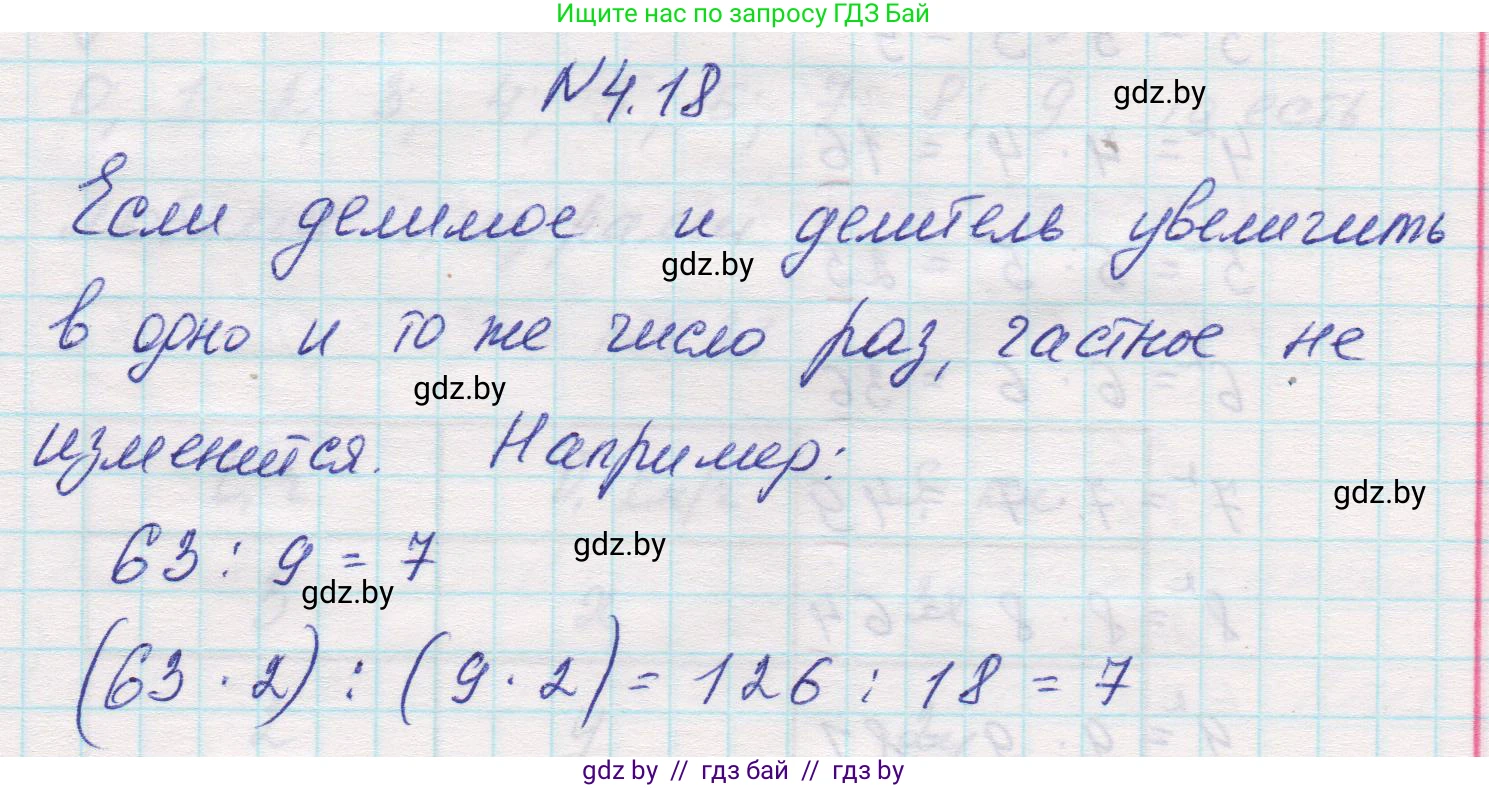 Ищите нас по запросу ГДЗ Бай
N 4.18
gdz.by
Если делимое и делитель увеличить
gdz.by
в одно и то же число раз, частное не
gdz.by
изменится. Например:
gdz.by
63 : 9 = 7
gdz.by
gdz.by
(63 · 2) : (9 · 2) = 126 : 18 = 7
gdz by // гдз бай // гдз by